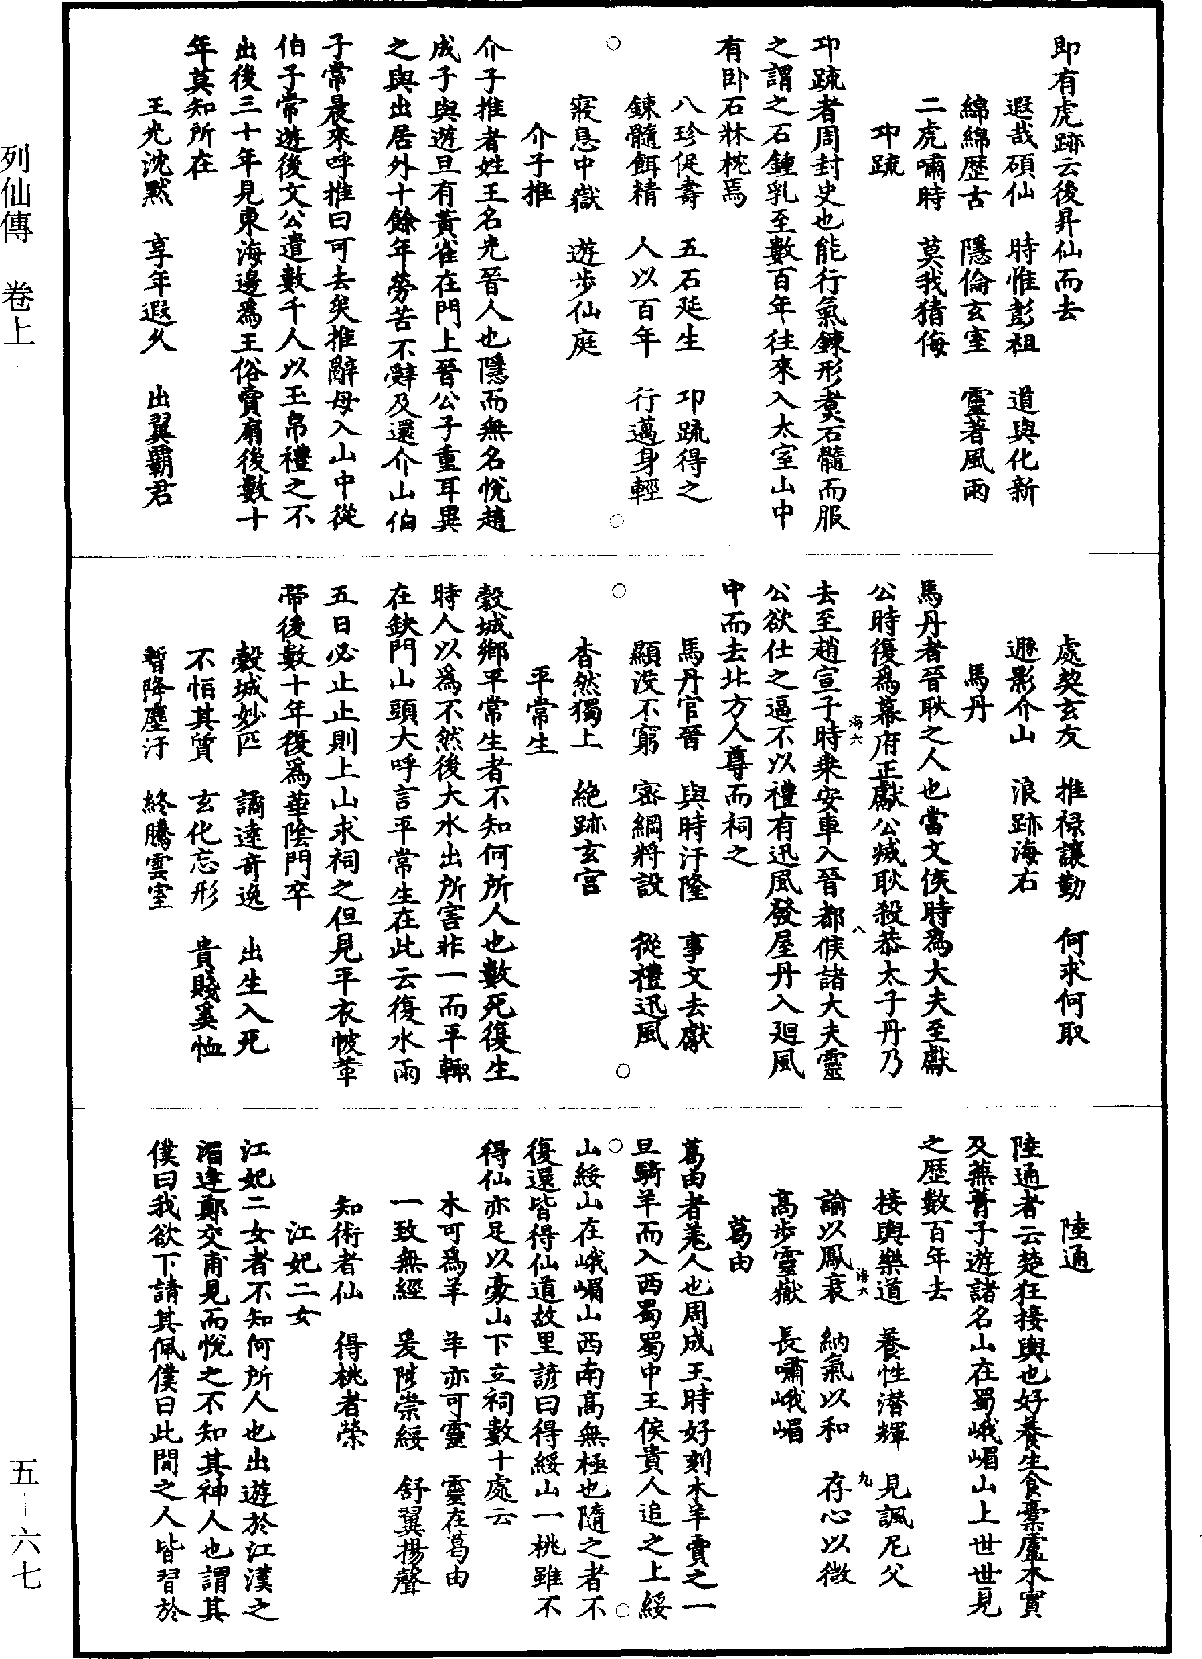 即有虎跡云後昇仙而去
遐哉碩仙　時惟彭祖　道與化新
綿綿歷古　隱倫玄室　靈著風雨
二虎嘯時　莫我猜侮
邛疏
邛疏者周封史也能行氣鍊形煑石髓而服
之謂之石鍾乳至數百年往來入太室山中
有卧石牀枕焉
八珍促壽　五石延生　邛疏得之
鍊髓餌精　人以百年　行邁身輕
寢息中嶽　遊步仙庭
介子推
介子推者姓王名光晉人也隱而無名悅趙
成子與遊旦有黃雀在門上晉公子重耳異
之與出居外十餘年勞苦不辭及還介山伯
子常晨來呼推曰可去矣推辭母入山中從
伯子常遊後文公遣數千人以玉帛禮之不
出後三十年見東海邊爲王俗賣扇後數十
年莫知所在
王光沈默　享年遐久　出翼霸君
處契玄友　推祿讓勤　何求何取
遯影介山　浪跡海右
馬丹
馬丹者晉耿之人也當文侯時爲大夫至獻
公時復爲幕府正獻公滅耿殺恭太子丹乃
去至趙宣子時乗安車入晉都候諸大夫靈
公欲仕之逼不以禮有迅風發屋丹入廻風
中而去北方人尊而祠之
馬丹官晉　與時汙隆　事文去獻
顯没不窮　密網將設　從禮迅風
杳然獨上　絶跡玄宮
平常生
穀城鄉平常生者不知何所人也數死復生
時人以爲不然後大水出所害非一而平輒
在缺門山頭大呼言平常生在此云復水雨
五日必止止則上山求祠之但見平衣帔革
帶後數十年復爲華陰門卒
穀城妙匹　譎達奇逸　出生入死
不怕其質　玄化忘形　貴賤奚恤
暫降塵汙　終騰雲室
陸通
陸通者云楚狂接輿也好養生食橐盧木實
及蕪菁子遊諸名山在蜀峨嵋山上世世見
之歷數百年去
接輿樂道　養性潛輝　見諷尼父
諭以鳳衰　納氣以和　存心以微
高步靈嶽　長嘯峨嵋
葛由
葛由者羌人也周成王時好刻木羊賣之一
旦騎羊而入西蜀蜀中王侯貴人追之上綏
山綏山在峨嵋山西南高無極也隨之者不
復還皆得仙道故里諺曰得綏山一桃雖不
得仙亦足以豪山下立祠數十處云
木可爲羊　羊亦可靈　靈在葛由
一致無經　爰陟崇綏　舒翼揚聲
知術者仙　得桃者榮
江妃二女
江妃二女者不知何所人也出遊於江漢之
湄逢鄭交甫見而悅之不知其神人也謂其
僕曰我欲下請其佩僕曰此間之人皆習於
海六
八
海六
九
列仙傳　卷上
五－六七